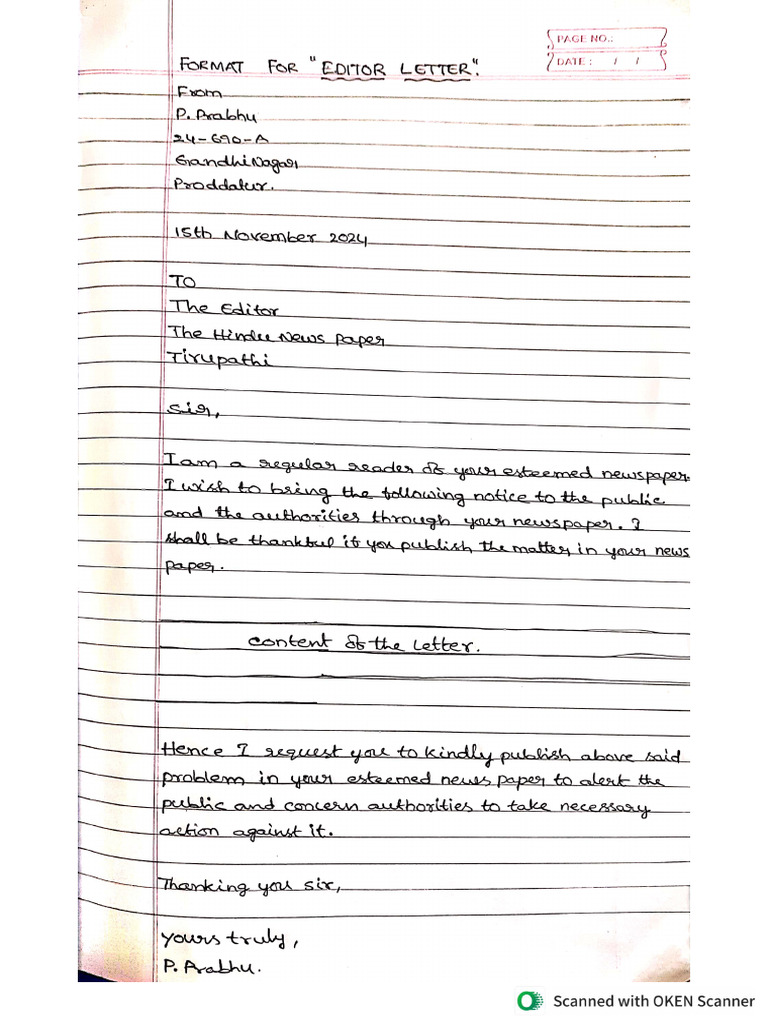 PAGE NO.:
DATE: / /
FORMAT FOR "EDITOR LETTER".
From
P. Prabhu
24-690-A
Gandhi Nagar,
Proddatur.
15th November 2024
TO
The Editor
The Hindu News paper
Tirupathi
Sir,
I am a regular reader of your esteemed newspaper.
I wish to bring the following notice to the public
and the authorities through your newspaper. I
shall be thankful if you publish the matter in your news
paper.
content of the Letter.
Hence I request you to kindly publish above said
problem in your esteemed news paper to alert the
public and concern authorities to take necessary
action against it.
Thanking you sir,
yours truly,
P. Prabhu.
Scanned with OKEN Scanner